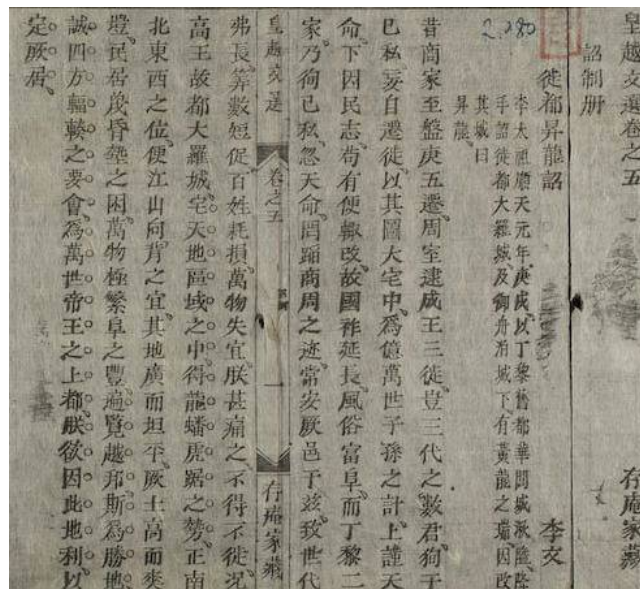 皇越文選卷之五
存庵家藏
詔制册
徙都昇龍詔
李文
李太祖順天元年庚戌以丁黎舊都華閭城湫隘降
手詔徙都大羅城及御舟泊城下有黃龍之瑞因改
其城曰
昇龍
昔商家至盤庚五遷周室逮成王三徙豈三代之數君狥于
已私妄自遷徙以其圖大宅中爲億萬世子孫之計上謹天
命下因民志苟有便輙改故國祚延長風俗富阜而丁黎二
家乃徇已私忽天命罔蹈商周之迹常安厥邑于玆致世代
皇越文選
卷之五
一
存庵家藏
弗長筭數短促百姓耗損萬物失宜朕甚痛之不得不徙况
高王故都大羅城宅天地區域之中得龍蟠虎踞之勢正南
北東西之位便江山向背之宜其地廣而坦平厥土高而爽
塏民居蔑昏墊之困萬物極繁阜之豐遍覽越邦斯爲勝地
誠四方輻輳之要會爲萬世帝王之上都朕欲因此地利以
定厥居
2.280